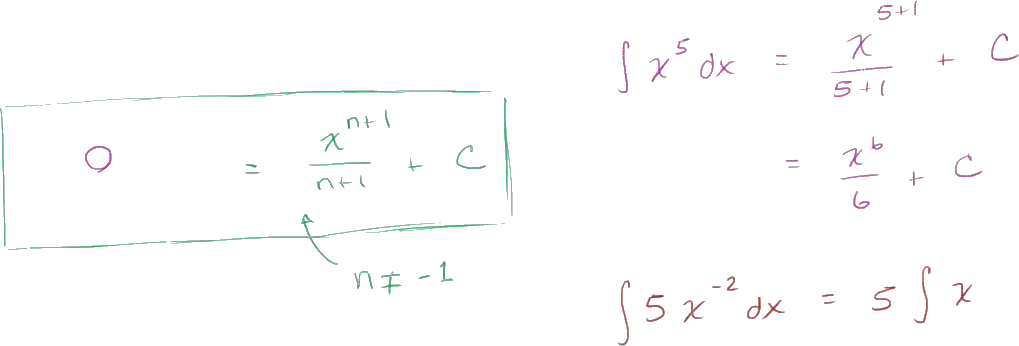 O = x^{n+1}/n+1 + C
n ≠ -1
∫ x^5 dx = x^{5+1}/5+1 + C
= x^6/6 + C
∫ 5 x^{-2} dx = 5 ∫ x